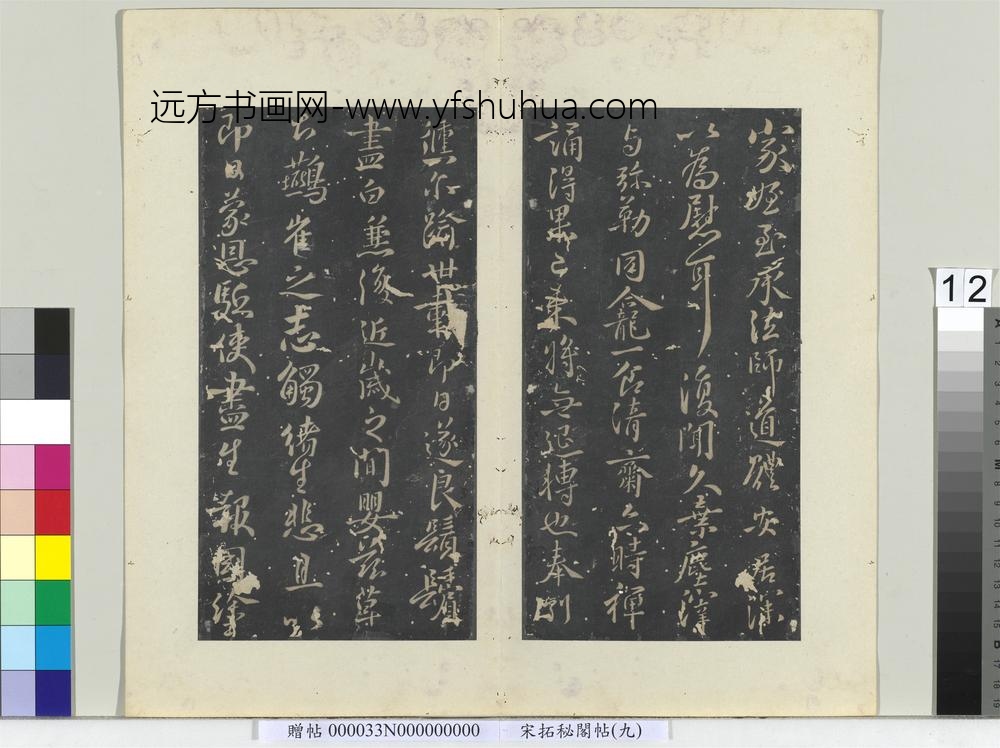 远方书画网-www.yfshuhua.com
家姪至承法師道體安居深
以為慰耳復聞久棄塵滓
与弥勒同龕一食清齋六時禪
誦得果已来將無退轉也奉別
儵尔踰卅載即日遂良鬚鬢
盡白兼復近歲之間嬰茲草
土鷰雀之志觸緒生悲且以
即日蒙恩駈使盡生報國途
12
贈帖 000033N000000000 宋拓秘閣帖(九)